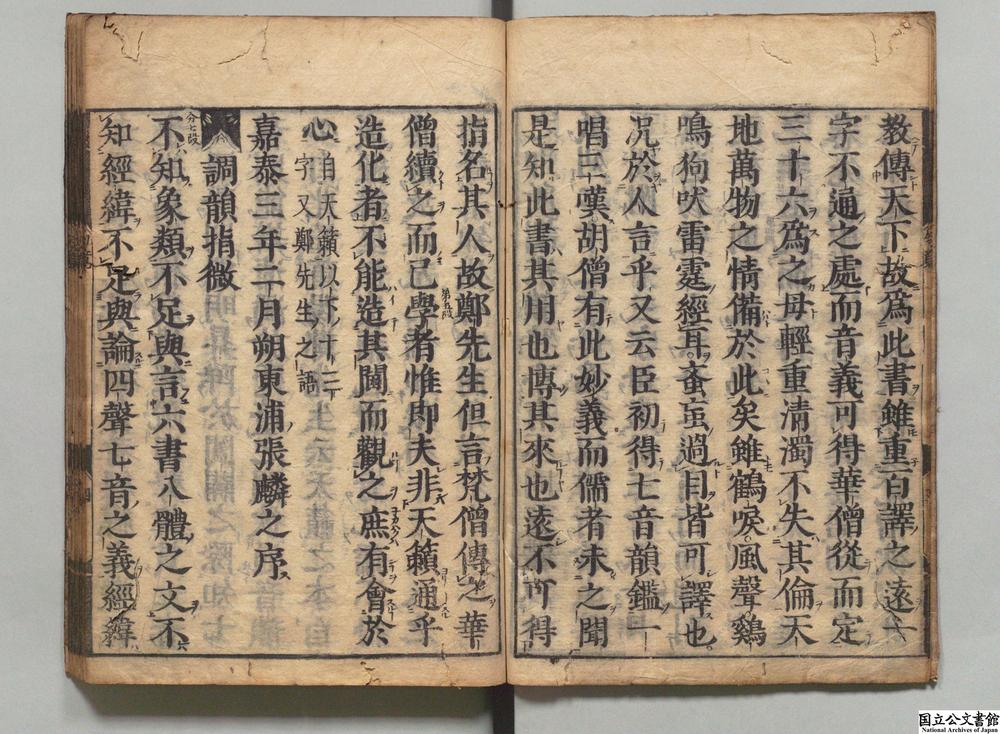 教傳天下故爲此書雖重百譯之遠一
字不通之處而音義可得華僧從而定
三十六爲之母輕重清濁不失其倫天
地萬物之情備於此矣雖鶴唳風聲鷄
鳴狗吠雷霆經耳蚉䖟過目皆可譯也
况於人言乎又云臣初得七音韻鑑一
唱三嘆胡僧有此妙義而儒者未之聞
是知此書其用也博其來也遠不可得
指名其人故鄭先生但言梵僧傳之華
僧續之而已學者惟即夫非天籟通乎
造化者不能造其閫而觀之庶有會於
心 自天籟以下十三
字又鄭先生之語
嘉泰三年二月朔東浦張麟之序
調韻指微
不知象類不足與言六書八體之文不
知經緯不足與論四聲七音之義經緯
国立公文書館
National Archives of Japan